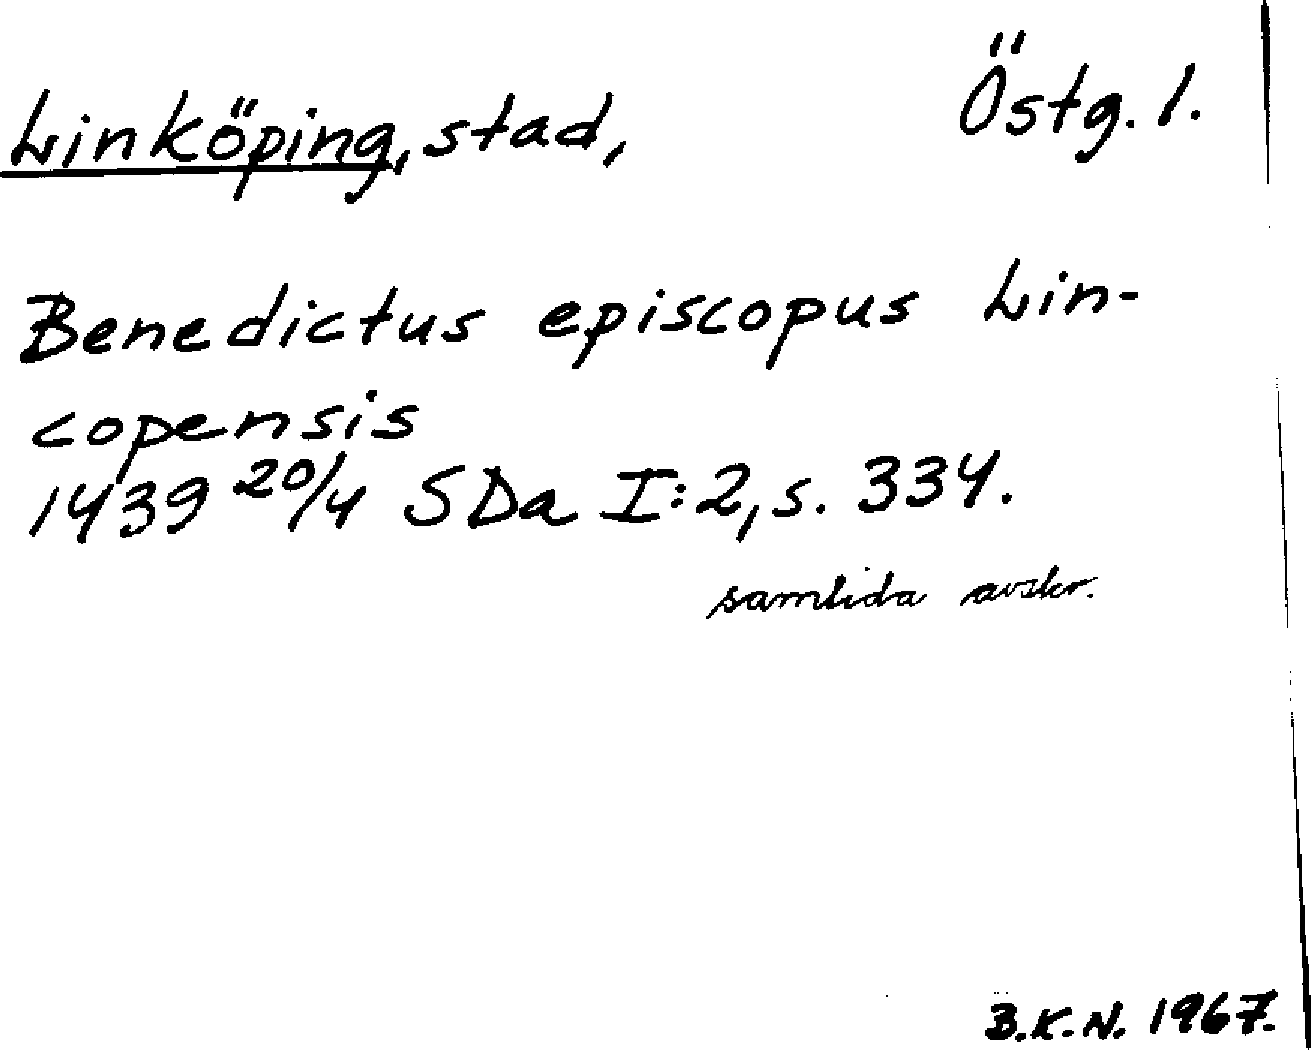 Linköping, stad, Östg. l.
Benedictus episcopus Lin-
copensis
1439 20/4 SDa I:2, s. 334.
samtida avskr.
B.K.N. 1967.